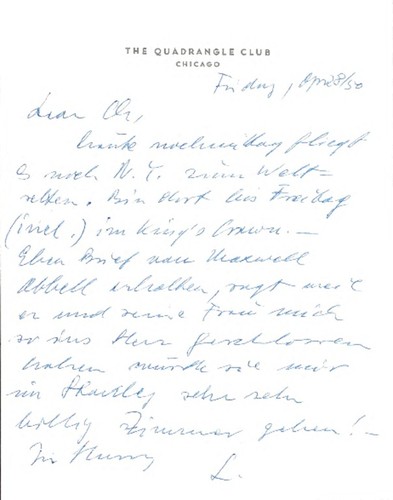 THE QUADRANGLE CLUB
CHICAGO
Friday, Apr 28/50
Dear
heute nachmittag fliegt
es nach N.Y. zum
Bin dort bis Freitag
(incl.) im King's Crown. —
Eben Brief von Maxwell
Abbell erhalten, sagt weil
er und seine Frau mich
so ins Herz geschlossen
haben würde sie mir
im sehr sehr
billig Zimmer geben! —
In Hurry
L.